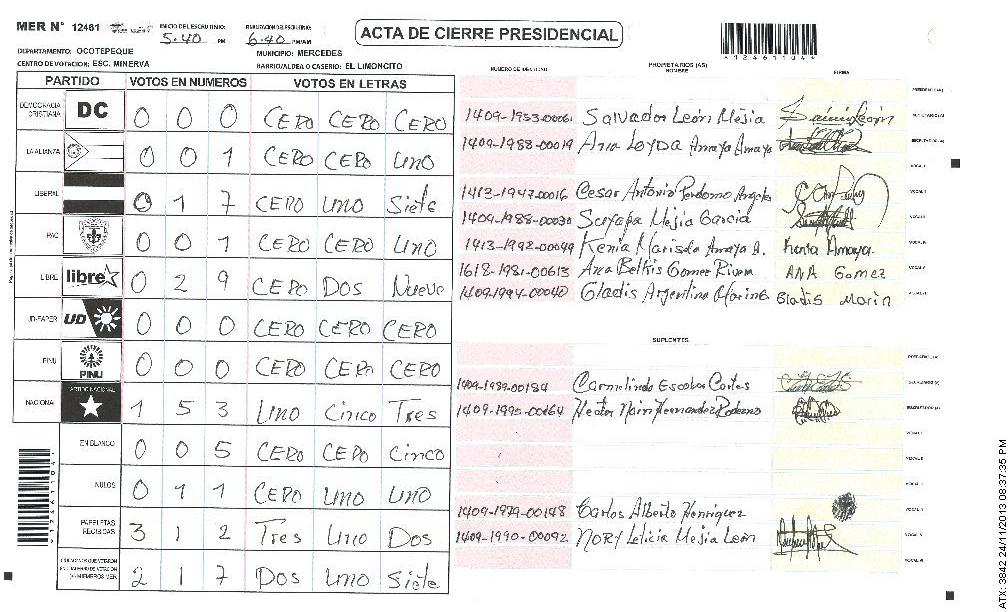 MER N° 12461 INICIO DEL ESCRUTINIO: 5:40 PM FINALIZACION DEL ESCRUTINIO: 6:40 PM/AM
ACTA DE CIERRE PRESIDENCIAL
*1246110 4*
DEPARTAMENTO: OCOTEPEQUE MUNICIPIO: MERCEDES
CENTRO DE VOTACION: ESC. MINERVA BARRIO/ALDEA O CASERIO: EL LIMONCITO
PARTIDO VOTOS EN NUMEROS VOTOS EN LETRAS
DEMOCRACIA CRISTIANA DC 0 0 0 CERO CERO CERO
LA ALIANZA 0 0 1 CERO CERO UNO
LIBERAL 0 1 7 CERO UNO Siete
PAC 0 0 1 CERO CERO UNO
LIBRE libre 0 2 9 CERO DOS Nueve
UD-FAPER UD 0 0 0 CERO CERO CERO
PINU PINU 0 0 0 CERO CERO CERO
NACIONAL PARTIDO NACIONAL 1 5 3 UNO Cinco Tres
EN BLANCO 0 0 5 CERO CERO Cinco
NULOS 0 1 1 CERO UNO UNO
PAPELETAS RECIBIDAS 3 1 2 Tres Uno Dos
CIUDADANOS QUE VOTARON EN CUADERNO DE VOTACION (+) MIEMBROS MER 2 1 7 DOS UNO Siete
NUMERO DE IDENTIDAD PROPIETARIOS (AS) NOMBRE FIRMA
PRESIDENTE (A)
1409-1953-00061 Salvador León Mejia
SECRETARIO (A)
1409-1988-00019 Ana Loyda Amaya Amaya
VOCAL I
1413-1947-00016 Cesar Antonio Perdomo VOCAL II
1409-1988-00030 Sayapa Mejia Garcia VOCAL III
1413-1992-00099 Kenia Marisela Amaya A. Kenia Amaya. VOCAL IV
1618-1981-00613 Ana Belkis Gomez Rivera ANA Gomez VOCAL V
1409-1994-00040 Gladis Argentina Gladis Marin VOCAL VI
SUPLENTES
PRESIDENTE (A)
1409-1989-00184 Carmelinda Escobar Cortes SECRETARIO (A)
1409-1990-00164 Hector Nain Hernandez Perdomo
VOCAL I
VOCAL II
VOCAL III
1409-1979-00148 Carlos Alberto Henriquez VOCAL IV
1409-1990-00092 Nory Leticia Mejia León VOCAL V
VOCAL VI
ATX: 3842 24/11/2013 08:37:35 PM